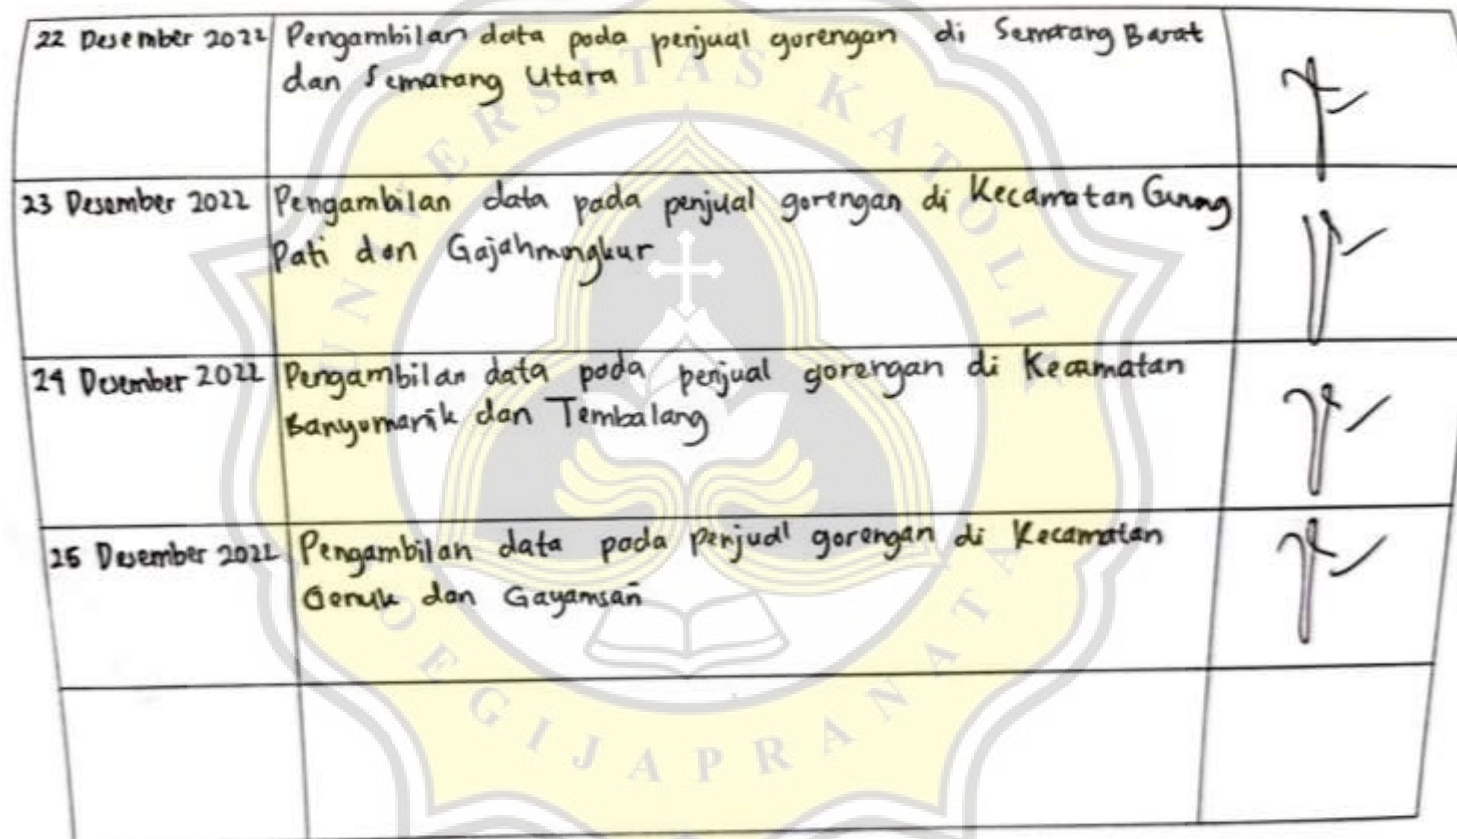 22 Desember 2022 Pengambilan data pada penjual gorengan di Semarang Barat
dan Semarang Utara
23 Desember 2022 Pengambilan data pada penjual gorengan di Kecamatan Gunung
Pati dan Gajahmungkur
24 Desember 2022 Pengambilan data pada penjual gorengan di Kecamatan
Banyumanik dan Tembalang
25 Desember 2022 Pengambilan data pada penjual gorengan di Kecamatan
Genuk dan Gayamsari
UNIVERSITAS KATOLIK
SOEGIJAPRANATA